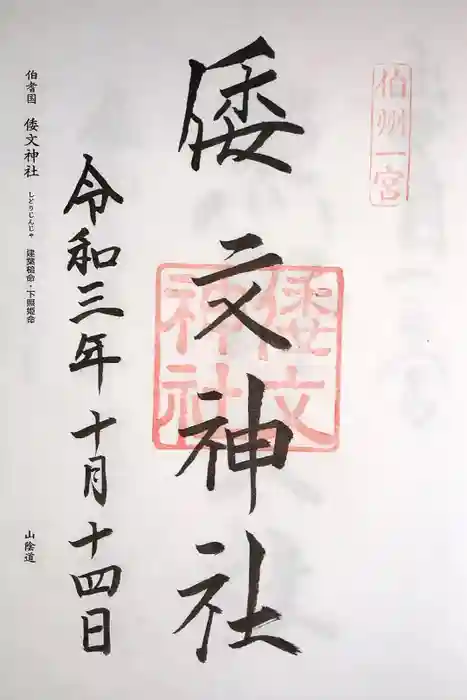 伯州一宮
倭文神社
倭文神社
令和三年十月十四日
伯耆国 倭文神社 しとりじんじゃ 建葉槌命・下照姫命 山陰道